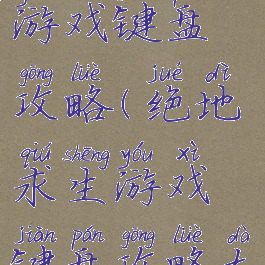 游戏键盘
gōng lüè jué dì
攻略(绝地
qiú shēng yóu xì
求生游戏
jiàn pán gōng lüè dà
键盘攻略大